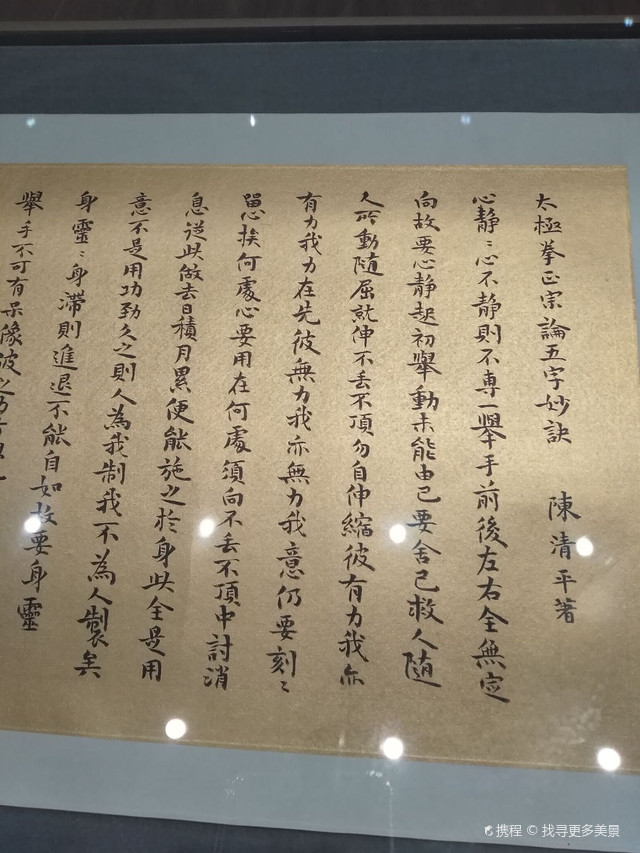 太極拳正宗論五字妙訣　陳清平著
心静〻心不静則不專一舉手前後左右全無定
向故要心静起初舉動未能由己要舍己救人隨
人所動隨屈就伸不丢不頂勿自伸縮彼有力我亦
有力我力在先彼無力我亦無力我意仍要刻〻
留心挨何處心要用在何處須向不丢不頂中討消
息從此做去日積月累便能施之於身此全是用
意不是用功勁久之則人為我制我不為人製矣
身靈〻身滯則進退不能自如故要身靈
舉手不可有呆像彼之力
携程 © 找寻更多美景